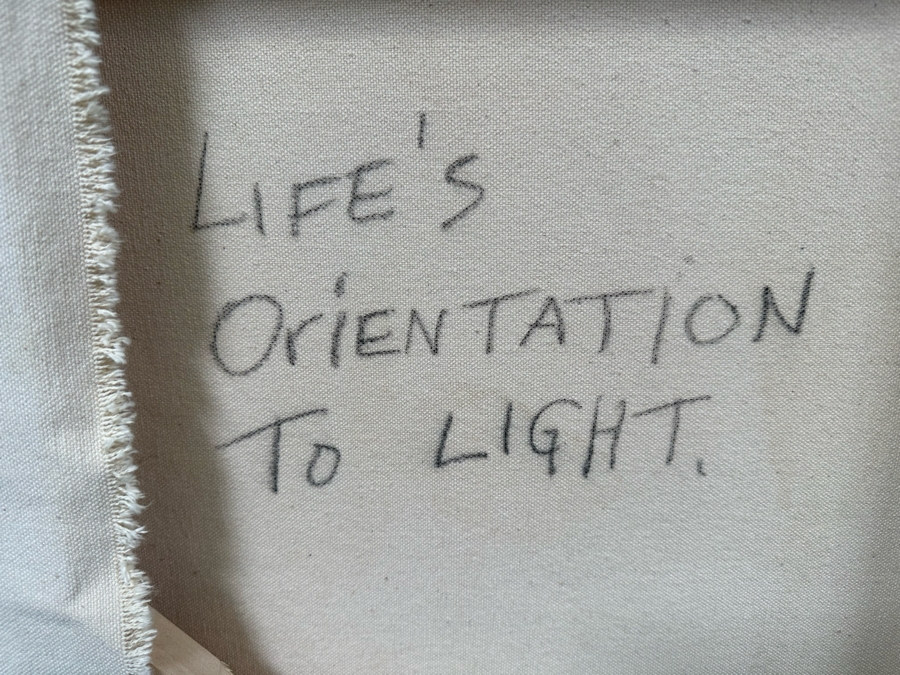 LIFE'S
OriENTATION
To LIGHT.